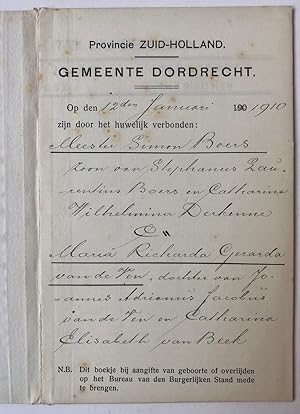 Provincie ZUID-HOLLAND.
GEMEENTE DORDRECHT.
Op den 12den Januari 190 1910
zijn door het huwelijk verbonden:
Meester Simon Boers
zoon van Stephanus Lau-
rentius Boers en Catharina
Wilhelmina Derkenne
en
Maria Richarda Gerarda
van de Ven, dochter van Jo-
annes Adrianus Jacobus
van de Ven en Catharina
Elisabeth van Beek
N.B. Dit boekje bij aangifte van geboorte of overlijden
op het Bureau van den Burgerlijken Stand mede
te brengen.